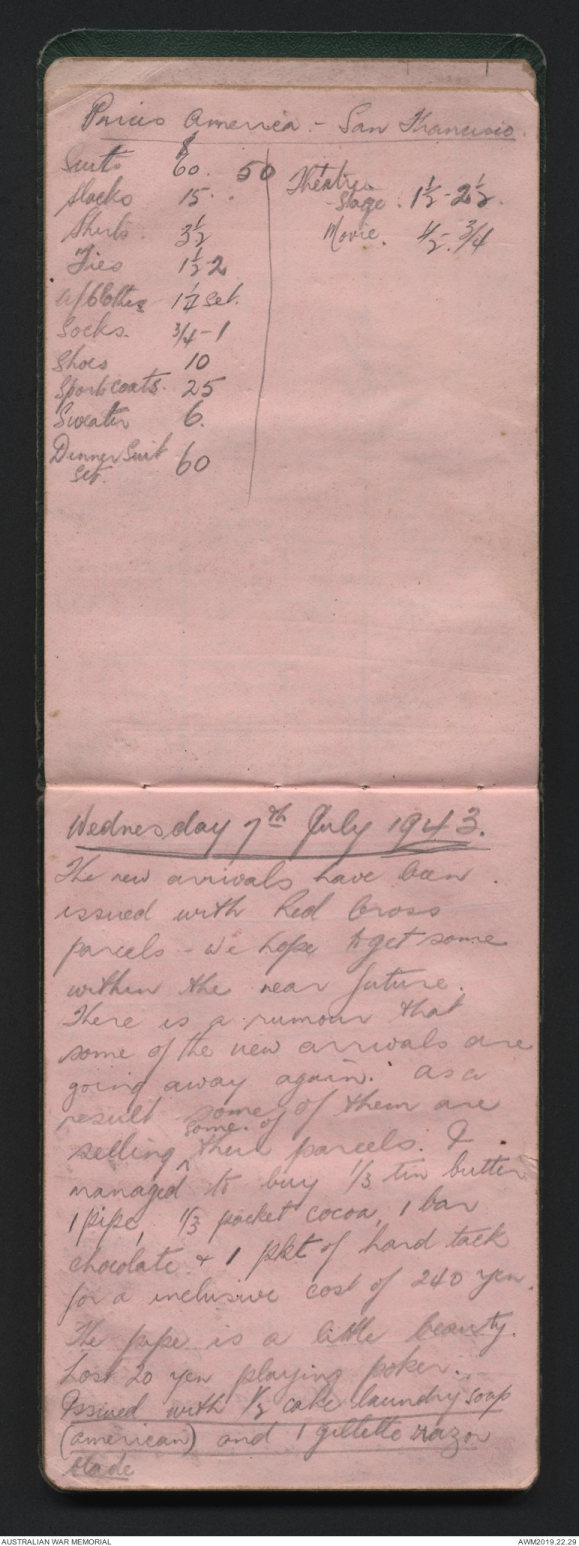 Prices America - San Francisco.
$
Suits 60. 50
Slacks 15.
Shirts 3½
Ties 1½-2
u/Clothes 1¼ set.
Socks. ¾-1
Shoes 10
Sports coats. 25
Sweater 6.
Dinner Suit 60
Set.
Theatre
- Stage. 1½-2½.
Movie. ½-¾
Wednesday 7th July 1943.
The new arrivals have been
issued with Red Cross
parcels - we hope to get some
within the near future.
There is a rumour that
some of the new arrivals are
going away again. As a
result some of them are
some of
selling ^ their parcels. I
managed to buy 1/3 tin butter
1 pipe, 1/3 packet cocoa, 1 bar
chocolate & 1 pkt of hard tack
for a inclusive cost of 240 yen.
The pipe is a little beauty.
Lost 20 yen playing poker.
Issued with ½ cake laundry soap
(american) and 1 gillette razor
blade
AUSTRALIAN WAR MEMORIAL
AWM2019.22.29